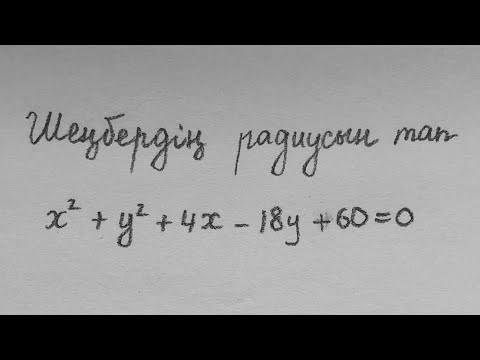 Шеңбердің радиусын тап
x² + y² + 4x - 18y + 60 = 0